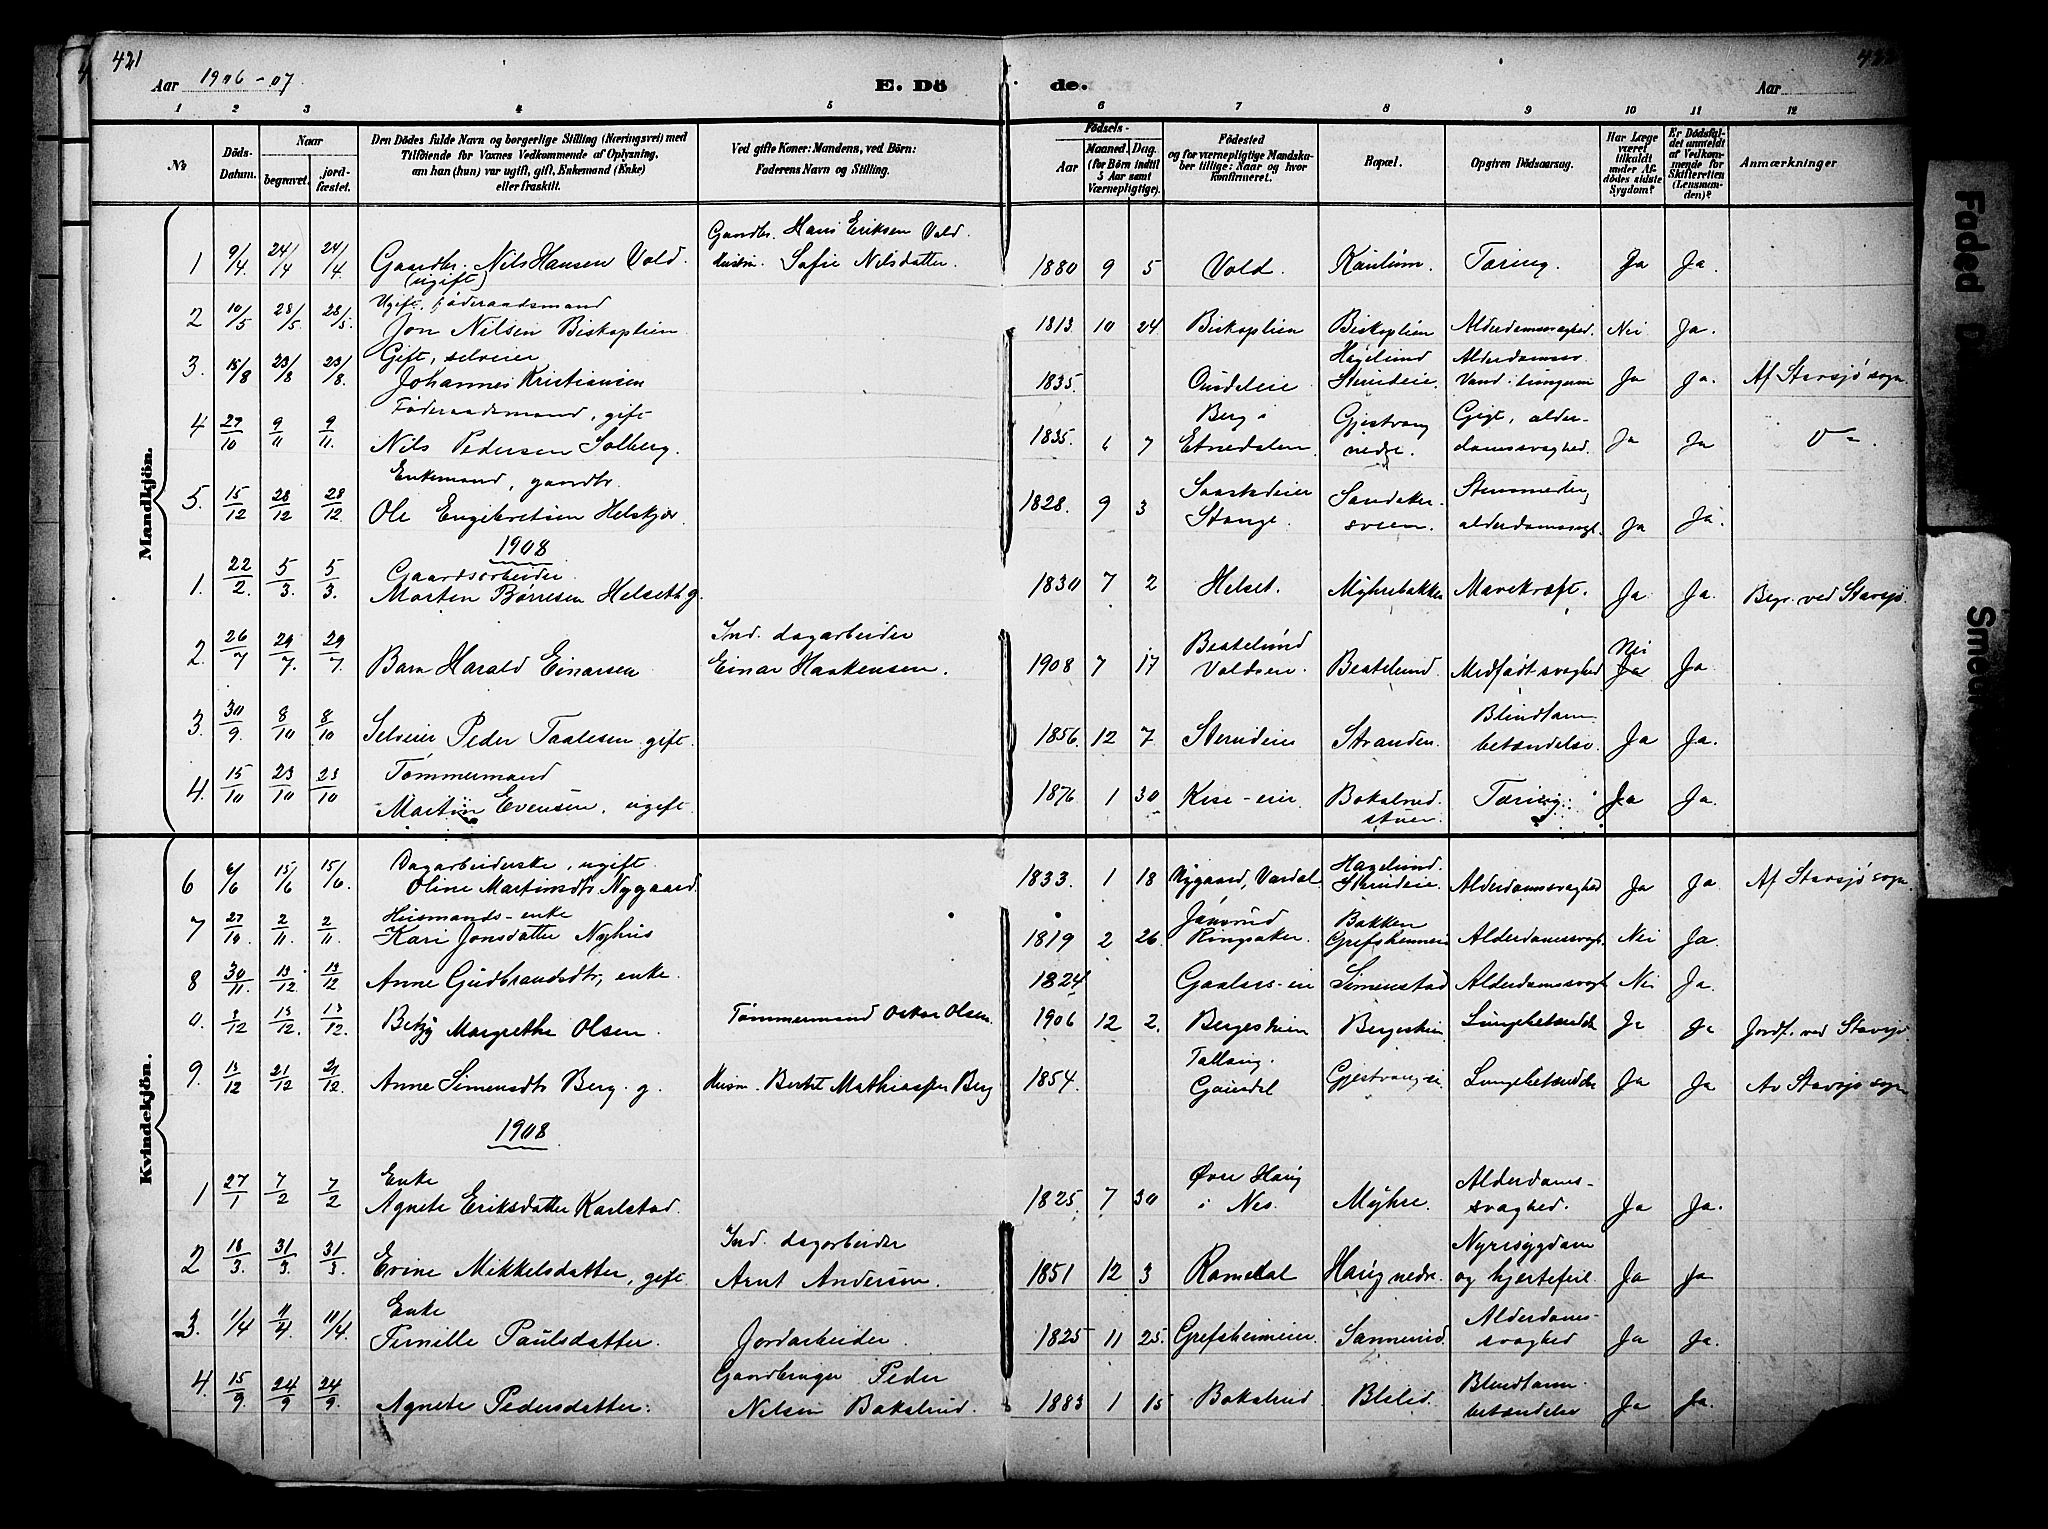 421
422
Aar 1906-07.
E. Döde.
Aar
1 2 3 4 5 6 7 8 9 10 11 12
No
Döds-Datum.
Naar
begravet.
jordfæstet.
Den Dödes fulde Navn og borgerlige Stilling (Næringsvei) med Tilföiende for Voxnes Vedkommende af Oplysning, om han (hun) var ugift, gift, Enkemand (Enke) eller fraskilt.
Ved gifte Koner: Mandens, ved Börn: Faderens Navn og Stilling.
Födsels-
Aar
Maaned. Dag.
(for Börn indtil 5 Aar samt Værnepligtige).
Födested og for værnepligtige Mandskaber tillige: Naar og hvor konfirmeret.
Bopæl.
Opgiven Dödsaarsag.
Har Læge været tilkaldt under Afdödes sidste Sygdom?
Er Dödsfaldet anmeldt af Vedkommende for Skifteretten (Lensmanden)?
Anmærkninger
Mandkjön.
1 9/4 24/4 24/4 Gaardbr. Nils Hansen Vold. (ugift) Gaardbr. Hans Eriksen Vold. Hustru Sofie Nilsdatter. 1880 9 5 Vold. Kaulum. Tæring. Ja Ja.
2 10/5 28/5 28/5. Ugift. føderaadsmand Jon Nilsen Biskoplien 1813 10 24 Biskoplien Biskoplien Alderdomssvaghed. Nei Ja.
3. 18/8 23/8 23/8. Gift, selveier Johannes Kristiansen 1835. Hagelund Stenseie. Alderdomssv. Vand i lungerne Ja Ja. Af Stavsjø sogn.
4 27/10 9/11 9/11. Føderaadsmand, gift Nils Pedersen Solberg. 1835. 6 7 Berg i Etnedalen Gjestvang nedre. Gigt, alderdomssvaghed. Ja Ja
5. 15/12 28/12 28/12 Enkemand, gaardbr. Ole Engebretsen Helskjør. 1828. 9 3 Saastadeier Stange. Sandakersveen. alderdomssvagh. Ja Ja.
1908
1. 22/2. 5/3. 5/3. Gaardsarbeider. Morten Børresen Helseth g. 1830 7 2 Helset. Myhrebakken Mavekræft. Ja Ja. Begr. ved Stavsjø.
2. 26/7 29/7. 29/7. Barn Harald Einarsen Ind. dagarbeider Einar Haakensen. 1908 7 17 Beatelund Voldsen. Beatelund. Medfødt svaghed Nei Ja Ja.
3. 30/9 8/10 8/10 Selveier Peder Taalesen. gift. 1856. 12 7. Stenseie Stranden. Blindtarmbetændelse. Ja Ja.
4. 15/10 23/10 23/10 Tømmermand Martin Evensen, ugift. 1876 1 30 Kise-eie Bakalrud. stuer. Tæring. Ja Ja.
Kvindekjön.
6 6/6 15/6 15/6. Dagarbeiderske, ugift. Oline Martinsdtr. Nygaard. 1833. 1 18 Nygaard, Vardal. Hagelund. Stenseie. Alderdomssvaghed Ja Ja. Af Stavsjø sogn.
7 27/10. 2/11. 2/11. Husmands-enke Kari Jonsdatter Nyhus 1819 2 26. Jansrud Ringsaker. Bakken Grefsheimeie Alderdomssvagh. Nei Ja.
8 30/11. 13/12. 13/12 Anne Gudbrandsdtr, enke. 1824 Gaalaas-eie Simenstad Alderdomssvagh. Nei Ja.
0. 3/12 13/12. 13/12. Betzy Margrethe Olsen. Tømmermand Oskar Olsen. 1906 12 2. Bergeshien Bergeshien Lungebetændelse Ja Ja Jordf. ved Stavsjø
9. 13/12 21/12 21/12. Anne Simensdtr Berg. g. Husm. Bertel Mathiassen Berg 1854. Tallaug. Gausdal Gjestvangeie Lungebetændelse Ja Ja Av Stavsjø sogn
1908
1 27/1 7/2 7/2 Enke Agnete Eriksdatter Karlstad. 1825 7 30 Øvre Haug i Nes. Myhre. Alderdomssvaghed. Ja Ja.
2 18/3. 31/3. 31/3. Evine Mikkelsdatter, gift. Ind. dagarbeider Arnt Andersen. 1851 12 3 Ramstal Haug nedre. Nyresygdom og hjertefeil. Ja Ja
3. 1/4 11/4. 11/4. Enke Pernille Paulsdatter. Jordarbeider. 1825 11 25. Grefsheimeier. Sannerud. Alderdomssvaghed Ja Ja.
4. 15/9. 24/9 24/9. Agnete Pedersdatter. Gaardbruger Peder Nilsen Bakalrud. 1883 1 15 Bakalrud Bleled. Blindtarmbetændelse Ja Ja.
Faded D
Sme